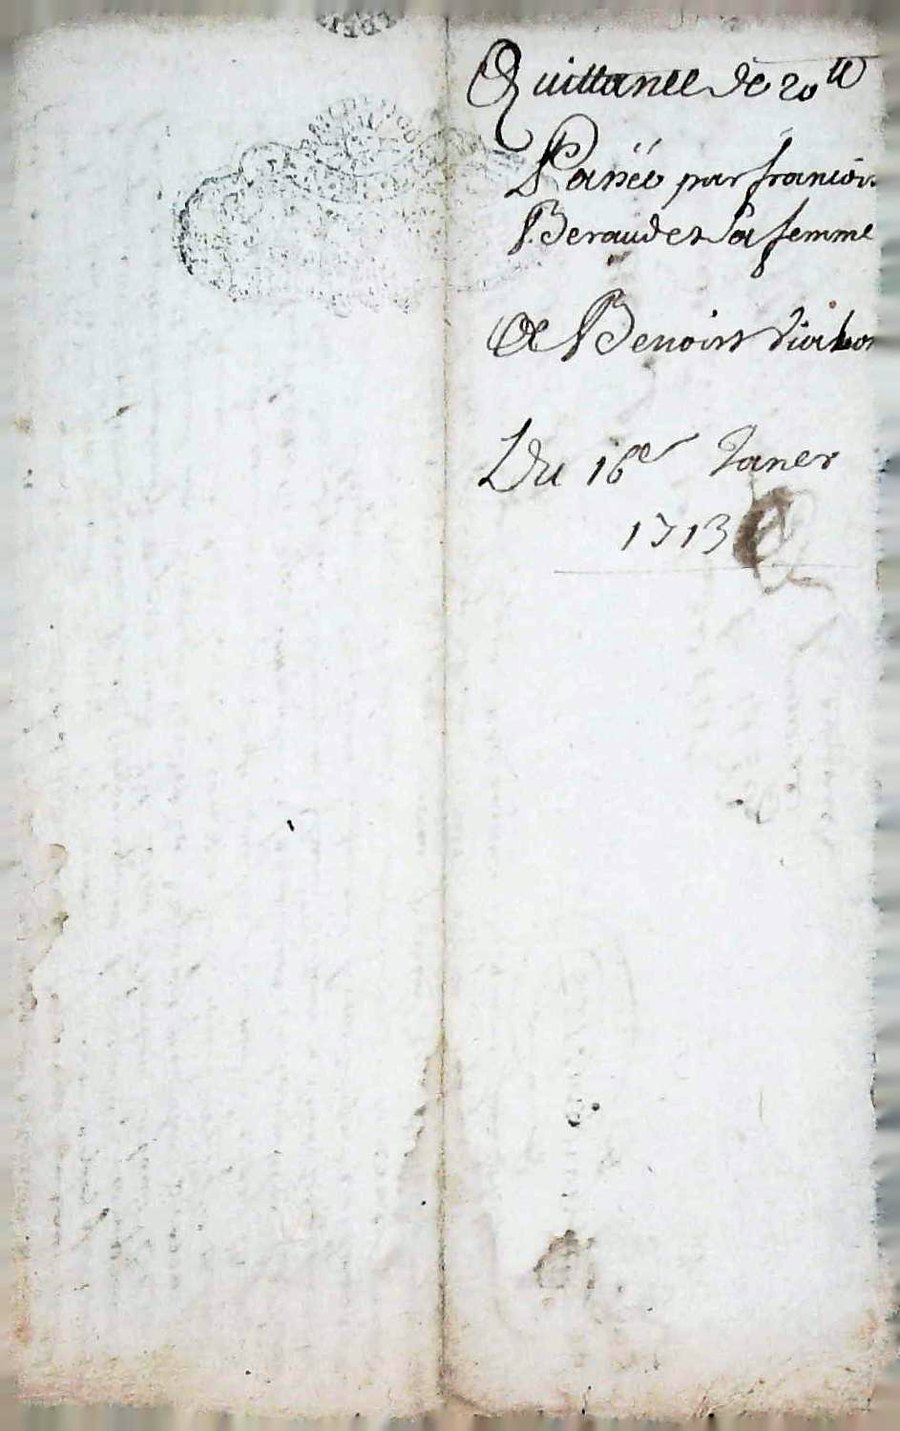 Quittance de 20ᵗᵗ
Passée par francois
Beraud et sa femme
a Benoist
Du 16ᵉ Janer
1713